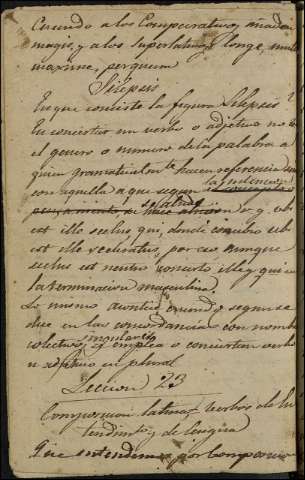 Cuando a los Comparativos, añaden
magis, y a los Superlativos longe, mul
maxime, perquam
Silepsis
En que consiste la figura Silepsis?
En concertar un verbo o adjetivo no con
el genero o numero de la palabra a
quien gramaticalmte hacen referencia sino
con aquella a que segun la intencion
se hace alusion v. g. ub
est ille scelus qui, donde scelus ub
est ille sceleratus, por eso aunque
scelus est neutro concertó ille y qui en
la terminacion masculina.
Lo mismo acontece cuando segun se
dice en las concordancias con nombre
colectivo, singular se emplea o conciertan verbo
o adjetivo en plural
Leccion 23
Composicion latina, verbos de En
tendimto y de lengua
Que entendemos por composicion